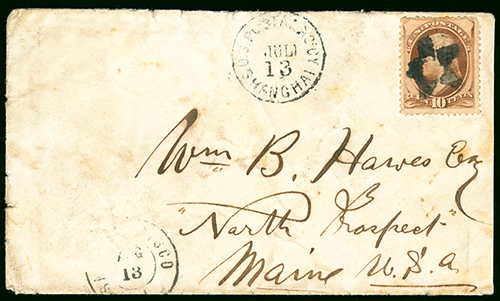 U.S. POSTAL AGCY
JUL
13
SHANGHAI
U.S. POSTAGE
10
Wm B. Hawes Esq
"North Prospect"
Maine U.S.a.
13